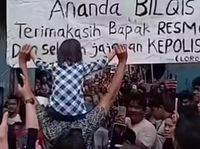 Ananda BILQIS
Terimakasih Bapak RESM
jajaran KEPOLIS
(LORO